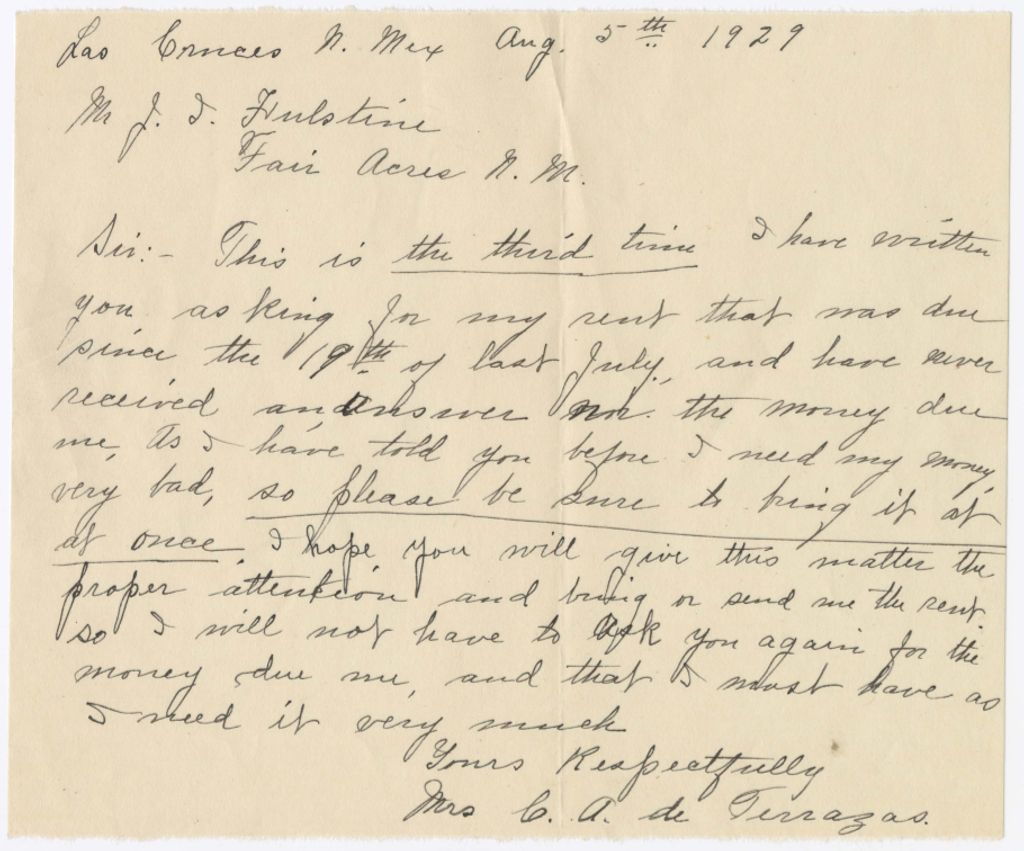 Las Cruces N. Mex Aug. 5th 1929
Mr J. I. Hulstine
Fair Acres N. M.
Sir:- This is the third time I have written
you asking for my rent that was due
since the 19th of last July, and have never
received an answer nor the money due
me, As I have told you before I need my money
very bad, so please be sure to bring it at
at once I hope you will give this matter the
proper attention and bring or send me the rent.
so I will not have to ask you again for the
money due me, and that I must have as
I need it very much
Yours Respectfully
Mrs C. A. de Terrazas.